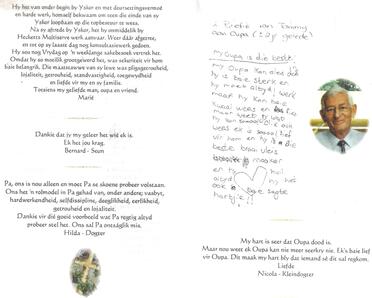 Hy het van onder begin by Yskor en met deursettingsvermoë
en harde werk, homself bekwaam om teen die einde van sy
Yskor loopbaan op die topbestuur te wees.
Na sy aftrede by Yskor, het hy onmiddelik by
Hecketts Multiserve werk aanvaar. Weer dáár afgetree,
en tot op sy laaste dag nog konsultasiewerk gedoen.
Hy sou nog Vrydag op 'n weeklange sakebesoek vertrek het.
Omdat hy so moeilik grootgeword het, was sekuriteit vir hom
baie belangrik. Die maatstawwe van sy lewe was pligsgetrouheid,
lojaliteit, getrouheid, standvastigheid, toegewydheid
en liefde vir my en sy familie.
Totsiens my geliefde man, oupa en vriend.
Marié
Dankie dat jy my geleer het wie ek is.
Ek het jou krag.
Bernard - Seun
Pa, ons is nou alleen en moet Pa se skoene probeer volstaan.
Ons het 'n rolmodel in Pa gehad van, onder andere; vasbyt,
hardwerkendheid, selfdissipline, deeglikheid, eerlikheid,
getrouheid en lojaliteit.
Dankie vir dié goeie voorbeeld wat Pa regtig altyd
probeer stel het. Ons sal Pa ontsaglik mis.
Hilda - Dogter
'n Gedig van
aan Oupa
My Oupa is die beste!
my Oupa kan alles doen
hy is baie sterk en
hy moet altyd werk
maar hy kan baie
kwaai wees en
maar weet
hy kan
wees ek is
vir hom en hy is die
beste braaivleis
maker
en hy
altyd hy het
ook sagte
hartjie!!
My hart is seer dat Oupa dood is.
Maar nou weet ek Oupa kan nie meer seerkry nie. Ek's baie lief
vir Oupa. Dit maak my hart bly dat iemand sê dit sal regkom.
Liefde
Nicola - Kleindogter